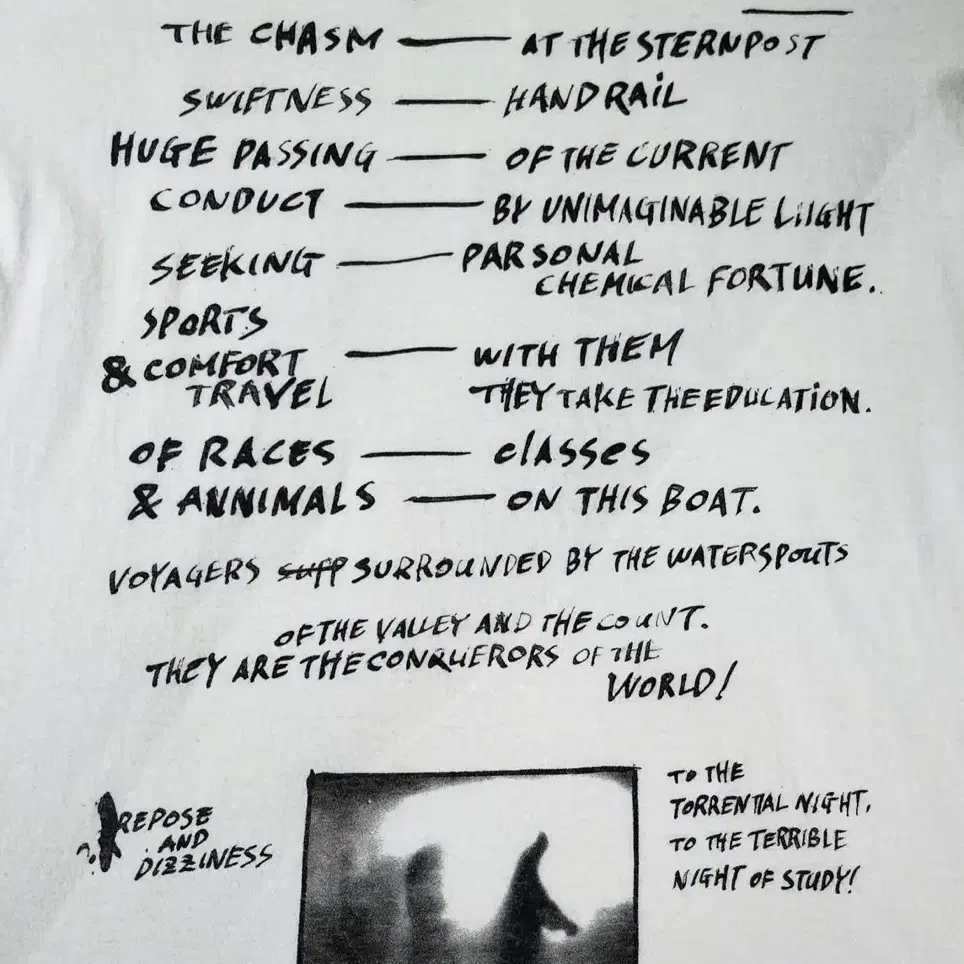 THE CHASM — AT THE STERNPOST
SWIFTNESS — HANDRAIL
HUGE PASSING — OF THE CURRENT
CONDUCT — BY UNIMAGINABLE LIIGHT
SEEKING — PARSONAL
CHEMICAL FORTUNE.
SPORTS
& COMFORT — WITH THEM
TRAVEL THEY TAKE THE EDUCATION.
OF RACES — classes
& ANNIMALS — ON THIS BOAT.
VOYAGERS SUFP SURROUNDED BY THE WATERSPOUTS
OF THE VALLEY AND THE COUNT.
THEY ARE THE CONQUERORS OF THE
WORLD!
REPOSE
AND
DIZZINESS
TO THE
TORRENTIAL NIGHT,
TO THE TERRIBLE
NIGHT OF STUDY!